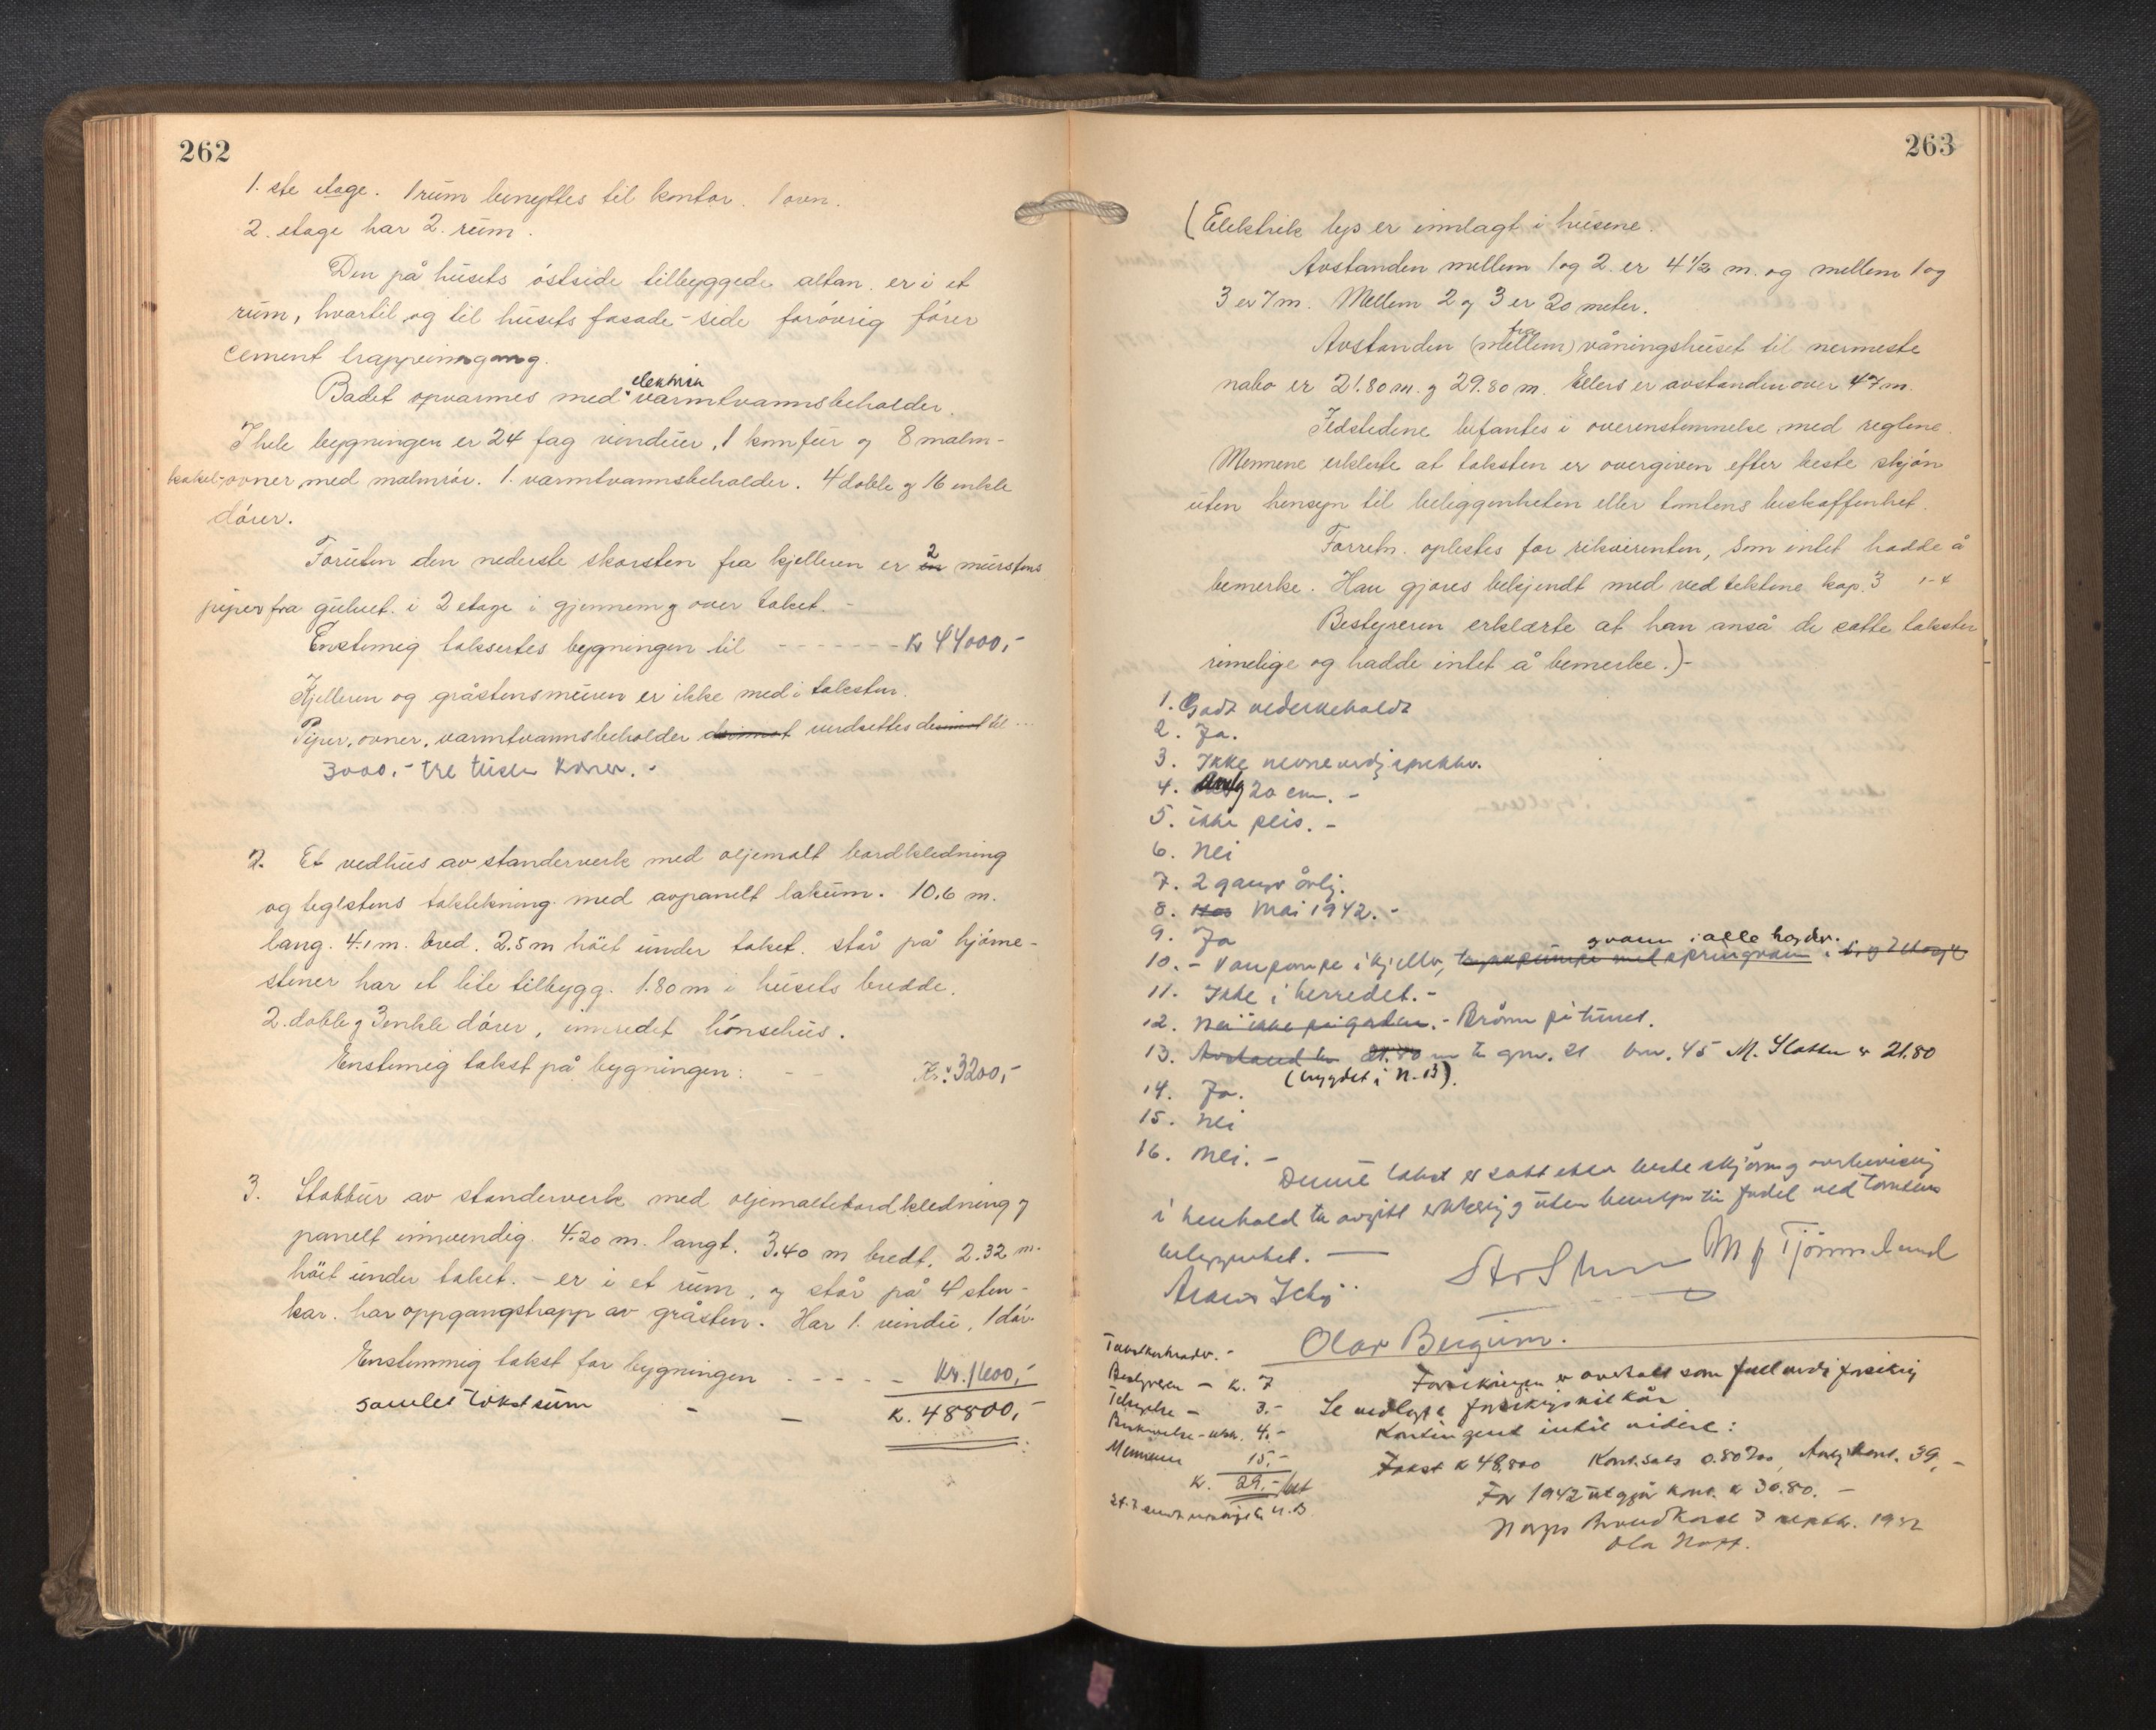 262
1. ste etage. 1 rüm benyttes til kontor. 1 ovn.
2. etage har 2. rüm.
Den på hüsets østside tilbyggede altan. er i et
rüm, hvortil og til hüsets fasade-side forøvrig fører
Cement trappeinngang.
Badet opvarmes med elektrisk varmtvannsbeholder.
I hele bygningen er 24 fag vindüer, 1 komfür og 8 malm-
kakel-ovner med malmrör. 1. varmtvannsbeholder. 4 doble og 16 enkle
dører.
Forüten den nederste skorsten fra kjelleren er en 2 mürstens
piper fra gülvet i 2 etage i gjennem og over taket. -
Enstemig taksertes bygningen til - - - - - - - Kr 44000,-
Kjelleren og gråstensmüren er ikke med i taksten.
Piper, ovner, varmtvannsbeholder verdsettes til ...
3000.- tre tüsen kroner. -
2. Et vedhüs av standerverk med oljemalt bordkledning
og teglstens taktekning med avpanelt lakum. 10.6 m.
lang. 4.1 m. bred. 2.5 m höit ünder taket. står på hjörne-
stener har et lite tilbygg. 1.80 m i hüsets bredde.
2. doble og 3 enkle dører, innredet hönsehüs.
Enstemig takst på bygningen: - - Kr. 3200,-
3. Stabbür av standerverk med oljemaltebordkledning og
panelt innvendig. 4.20 m. langt. 3.40 m bredt. 2.32 m.
höit ünder taket. - er i et rüm, og står på 4 sten-
kar. har oppgangstrapp av gråsten. Har 1. vindü, 1 dör.
Enstemmig takst for bygningen - - - - - Kr. 1600,-
samlet takst süm - - K. 48800,-
263
(Elektrik lys er innlagt i hüsene.
Avstanden mellem 1 og 2. er 4 1/2 m. og mellem 1 og
3 er 7 m. Mellem 2 og 3 er 20 meter.
Avstanden (mellem) fra våningshüset til nermeste
nabo er 21.80 m. og 29.80 m. Ellers er avstanden over 47 m.
Ildstedene befantes i overenstemmelse med reglene.
Mennene erklerte at taksten er overgiven efter beste skjön
üten hensyn til beliggenheten eller tomtens beskaffenhet.
Forretn. oplestes for rekvirenten, som intet hadde å
bemerke. Han gjøres bekjendt med vedtektene kap. 3
Bestyreren erklærte at han anså de satte takster
rimelige og hadde intet å bemerke.)-
1. Godt vedlikeholdt
2. Ja.
3. Ikke
4. 20 cm. -
5. ikke peis. -
6. Nei
7. 2 ganger årlig.
8. Mai 1942. -
9. Ja
10. - Vannpumpe i kjeller, springvann i alle høgder.
11. Ikke i herredet. -
12. Nei ikke på garden. - Brønn på tünet.
13. Avstand til 21.80 m til gnr. 21 bnr. 45 M. Slatten er 21.80
(bygdet i N. 13).
14. Ja.
15. Nei
16. Nei. -
Denne takst er satt etter beste skjønn og overbevisning
i henhold til avgitt erklering og üten hensyn til fordel ved tomtens
beliggenhet. —
M J Tjønneland
Olav Bergüm.
Bestyreren - K. 7
3.-
4.-
Mennene 15.-
K. 29.-
Forsikringen er overtatt som fullverdi forsikring
Se vedlagte forsikringsvilkår
Kontingent intil videre:
Takst K 48,800 Kont.sats 0.80 ‰, Årlig kont. 39,-
For 1942 utgjør kont. K 30.80. -
Norges Brandkasse 3 septbr. 1942